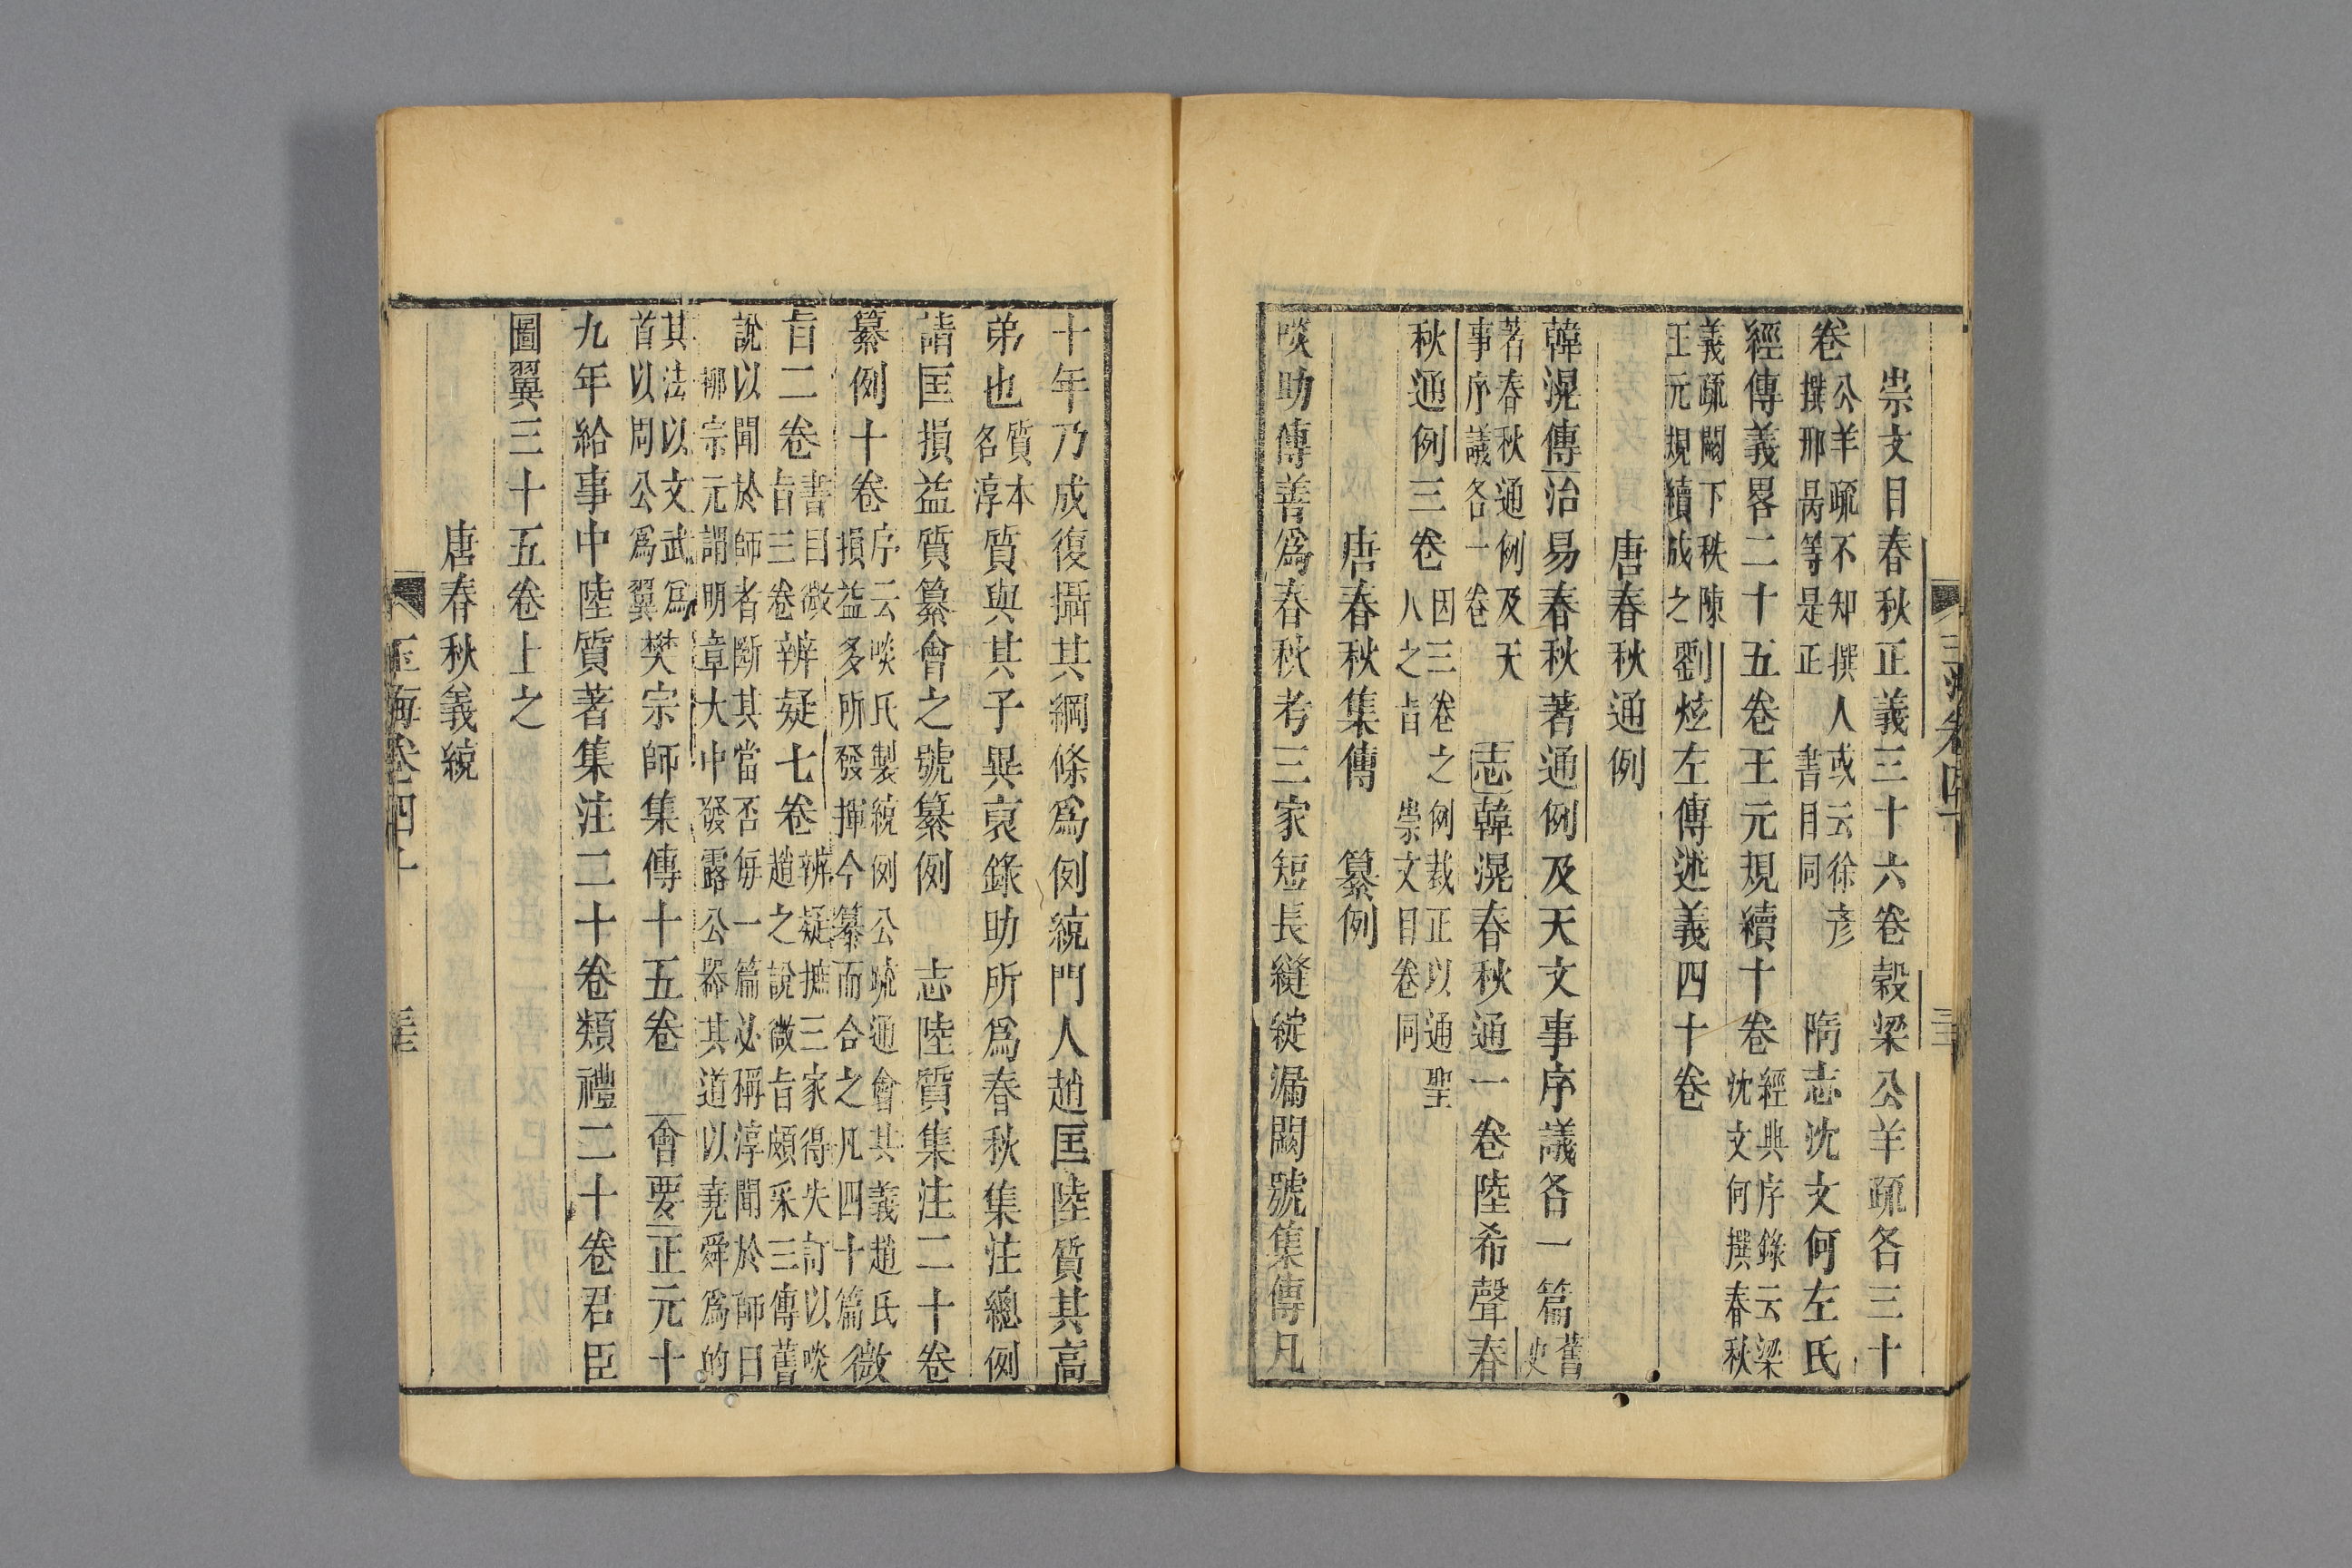 崇文目春秋正義三十六卷穀梁公羊疏各三十
卷公羊疏不知撰人或云徐彥撰邢昺等是正書目同隋志沈文何左氏
經傳義畧二十五卷王元規續十卷經典序錄云梁沈文何撰春秋
義疏闕下秩陳王元規續成之劉炫左傳述義四十卷
唐春秋通例
韓滉傳治易春秋著通例及天文事序議各一篇舊史
著春秋通例及天事序議各一卷志韓滉春秋通一卷陸希聲春
秋通例三卷因三卷之例裁正以通聖人之旨崇文目卷同
唐春秋集傳 纂例
啖助傳善爲春秋考三家短長縫綻漏闕號集傳凡
十年乃成復攝其綱條爲例統門人趙匡陸質其高
弟也質本名淳質與其子異裒錄助所爲春秋集注總例
請匡損益質纂會之號纂例 志陸質集注二十卷
纂例十卷序云啖氏製統例公疏通會其義趙氏損益多所發揮今纂而合之凡四十篇微
旨二卷書目微旨三卷辨疑七卷辨疑摭三家得失訂以啖趙之說微旨頗采三傳舊
說以聞於師者斷其當否每一篇必稱淳聞於師曰柳宗元謂明章大中發露公器其道以堯舜爲的
其法以文武爲首以周公爲翼樊宗師集傳十五卷會要正元十
九年給事中陸質著集注二十卷類禮二十卷君臣
圖翼三十五卷上之
唐春秋義統
玉海卷四十